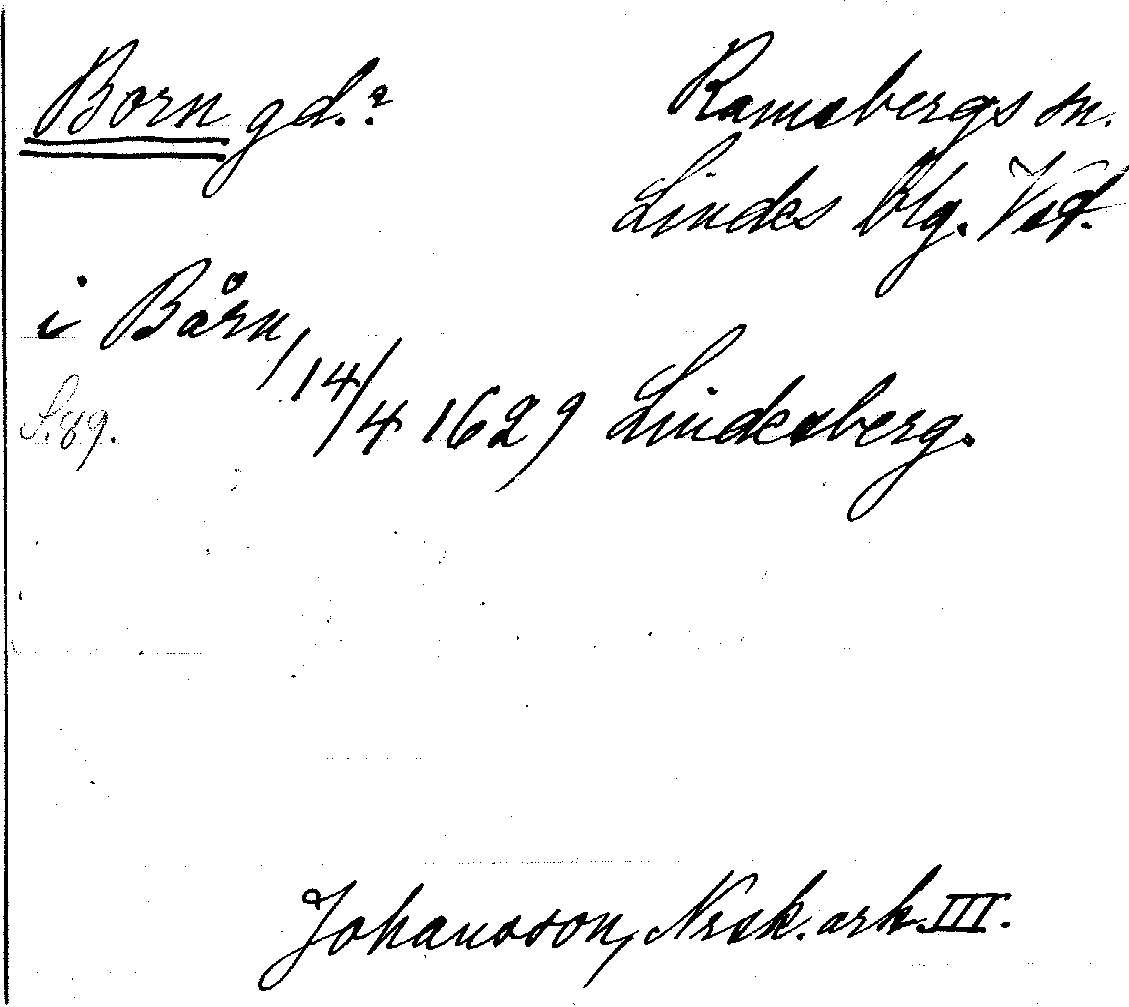 Born gd.?
Ramsbergs sn.
Lindes blg. Vstl.
i Bårn, 14/4 1629 Lindesberg.
S. 89.
Johansson, Nrsk. ark. III.